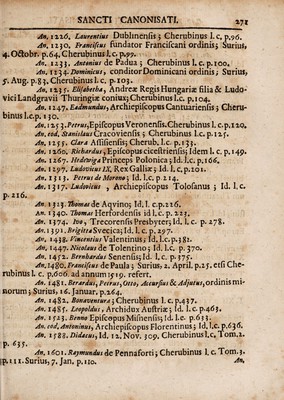 SANCTI CANONISATI. 271
An. 1226. Laurentius Dublinensis; Cherubinus l. c, p.96.
An. 1230. Franciscus fundator Franciscani ordinis; Surius,
4. Octobr. p.64, Cherubinus l. c. p.99.
An. 1233. Antonius de Padua; Cherubinus l. c. p.100.
An. 1234. Dominicus, conditor Dominicani ordinis; Surius,
5. Aug. p.83, Cherubinus l. c. p.103.
An. 1235. Elisabetha, Andreæ Regis Hungariæ filia & Ludo-
vici Landgravii Thuringiæ coniux; Cherubinus l. c. p.104.
An. 1247. Eadmundus, Archiepiscopus Cantuariensis; Cheru-
binus l. c.p. 130.
An. 1253. Petrus, Episcopus Veronensis. Cherubinus l. c. p.120.
An. eod. Stanislaus Cracoviensis; Cherubinus l. c. p.125.
An. 1255. Clara Assisiensis; Cherub. l. c. p. 133.
An. 1260. Richardus, Episcopus cicestriensis; Idem l. c. p.149.
An. 1267. Hedeviga Princeps Polonica; Id. l.c. p.166.
An. 1297. Ludovicus IX, Rex Galliæ; Id. l. c. p.201.
An. 1313. Petrus de Morono; Id. l.c. p.214.
An. 1317. Ludovicus, Archiepiscopus Tolosanus; Id. l. c.
p. 216.
An. 1323. Thomas de Aqvino; Id. l. c.p.216.
An. 1340. Thomas Herfordensis id l. c. p. 223.
An. 1374. Ivo, Trecorensis Presbyter; Id. l. c. p. 278.
An. 1391. Brigitta Svecica; Id. l. c. p. 297.
An. 1438. Vincentius Valentinus; Id. l. c. p.381.
An. 1447. Nicolaus de Tolentino; Id. l.c. p. 370.
An. 1452. Bernhardus Senensis; Id. l. c. p. 375.
An. 1480. Franciscus de Paula; Surius, 2. April. p.25. etsi Che-
rubinus l. c. p.606. ad annum 1519. refert.
An. 1481. Berardus, Petrus, Otto, Accursius & Adjutus, ordinis mi-
norum; Surius, 16. Januar. p.264.
An. 1482. Bonaventura; Cherubinus l. c. p.437.
An. 1485. Leopoldus, Archidux Austriæ; Id. l. c. p.463.
An. 1523. Benno Episcopus Misnensis; Id. l.c. p. 633.
An. eod. Antoninus, Archiepiscopus Florentinus; Id, l.c. p.636.
An. 1588. Didacus, Id. 12. Nov. 309. Cherubinus l. c, Tom.2.
p. 635.
An. 1601. Raymundus de Pennaforti; Cherubinus l. c. Tom.3.
p.111. Surius, 7. Jan. p.110. An.